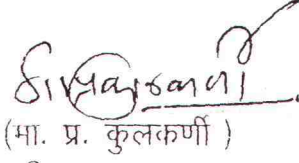 (मा. प्र. कुलकर्णी )